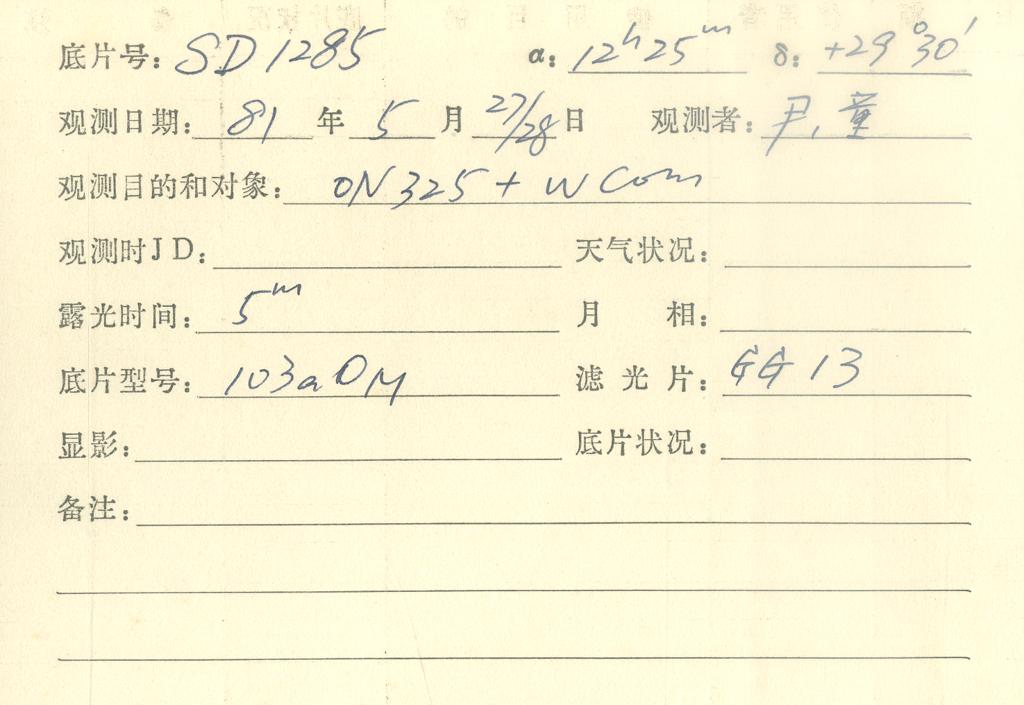 底片号: SD1285 α: 12ʰ25ᵐ δ: +29°30′
观测日期: 81 年 5 月 27/28 日 观测者: 尹, 童
观测目的和对象: ON325 + W Com
观测时JD: 天气状况:
露光时间: 5ᵐ 月 相:
底片型号: 103aOM 滤光片: GG13
显影: 底片状况:
备注: